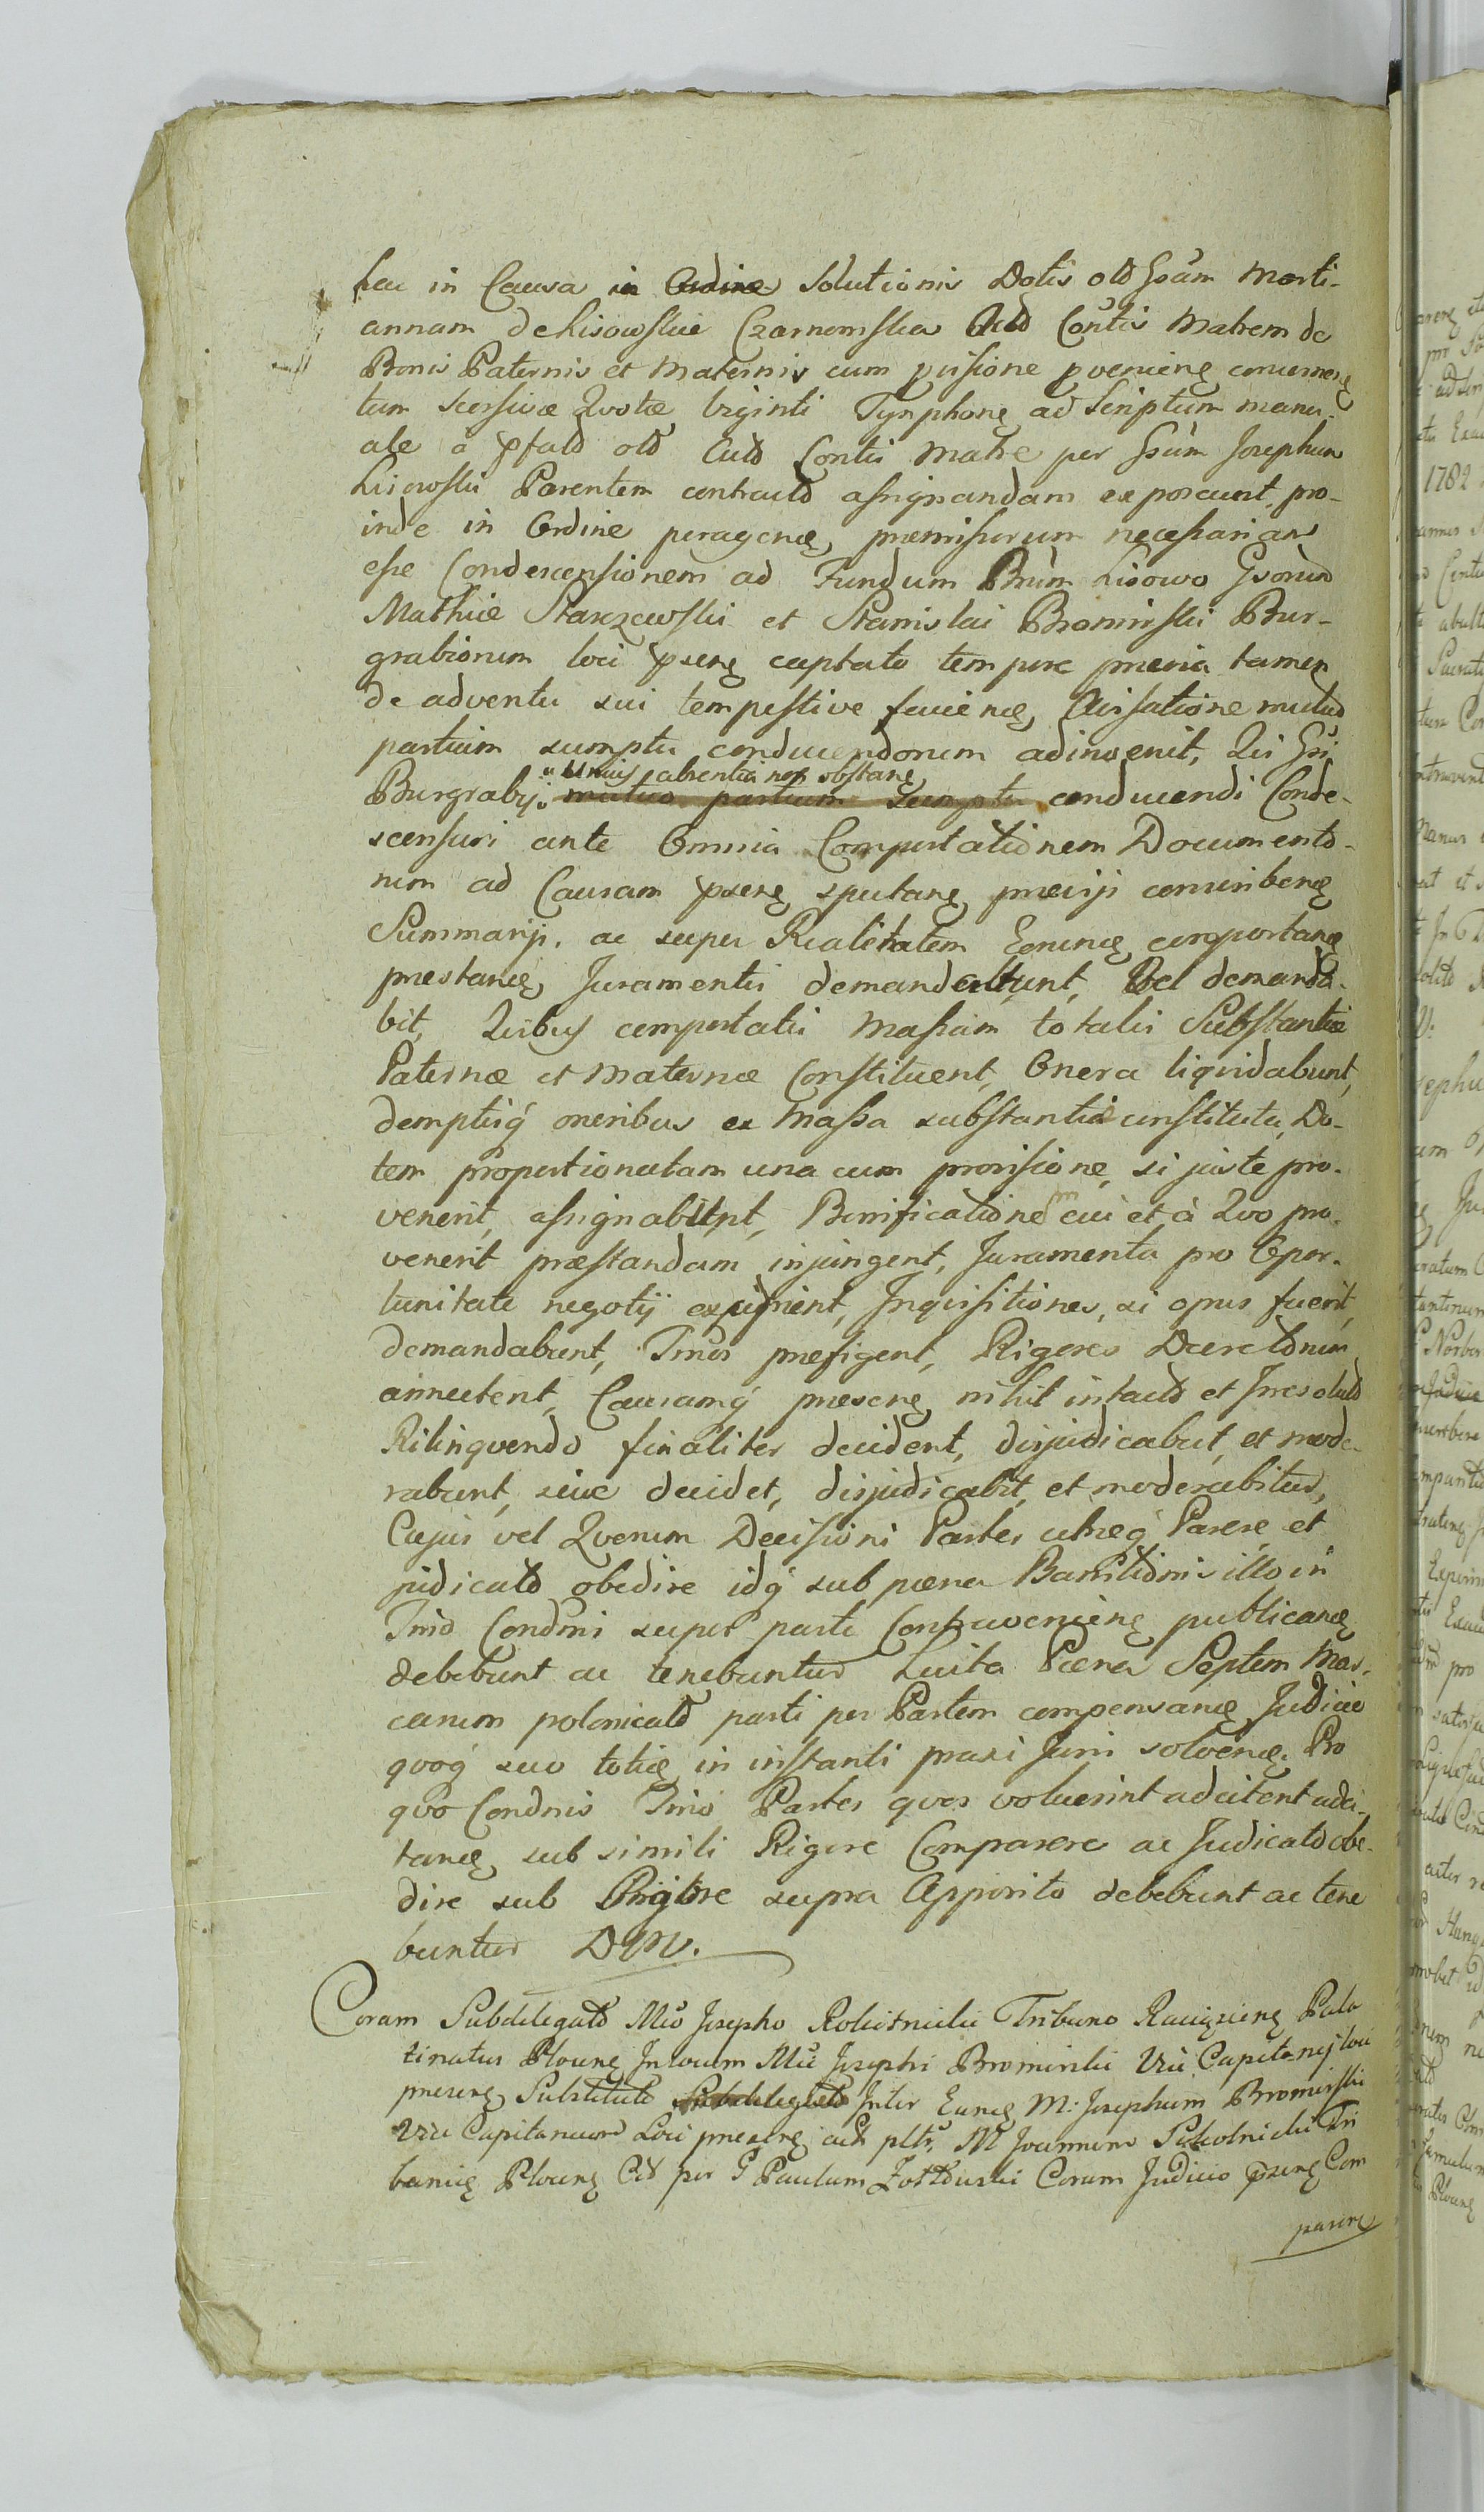 hac in Causa in Ordine Solutionis Dotis old Gsam Marti-
annam de Lisowskie Czarnomska Actd Contis Matrem de
Bonis Paternis et Maternis cum pvisione pvenieng concerneng
tum Scorsivæ Quotæ Viginti Tynphong ad Scriptum manu-
ale a pfato old Actd Contis Matre per Gsum Josephum
Lisowski Parentem contractd assignandam exposcunt, pro-
inde in Ordine peragenđ, præmissorum necessariam
esse Condescensionem ad Fundum Bnum Lisowo Gsorum
Mathiæ Starzewski et Stanislai Bromirski Bur-
grabiorum loci pseng captato tempore prævia tamen
de adventu sui tempestive facienđ, Avisatione mutuo
partium sumptu conducendorum adinvenit, Qui Gsi
"unius absentia non obstang
Burgrabij mutuo partium sumptu conducendi Conde-
scensuri ante Omnia Comportationem Documento-
rum ad Causam pseng spectang prævij conscribenđ
Summarij, ac super Realitatem Eorunđ comportanđ
præstanđ, Juramentis demandabunt, Vel demanda-
bit, Quibus comportatis Massam totalis Substantiæ
Paternæ et Maternæ Constituent, Onera liquidabunt,
demptisq oneribus ex Massa substantiæ constituta, Do-
tem proportionatam una cum provisione, si juste pro-
venerit, assignabunt, Bonificationem cui et à Quo pro-
venerit præstandam injungent, Juramenta pro Opor-
tunitate negotij excipient, Inquisitiones, si opus fuerit,
demandabunt, Tnos præfigent, Rigores Decretorum
annectent, Causamq præseng nihil intactd et Irresolutd
Relinquendo finaliter decident, disjudicabut, et mode-
rabunt, sive decidet, disjudicabit, et moderabitur,
Cujus vel Quorum Decisioni Partes utræq Parere et
judicatd obedire idq sub pœna Bannitionis illo in
Tnio Condnni super parte Contravenieng publicanđ
debebunt ac tenebuntur Luita Pœna Septem Mar-
carum polonicald parti per Partem compensanđ Judicio
quoq suo toties in instanti praxi Juri solvenđ. Pro
quo Condnis Tnio Partes quos voluerint adcitent adci-
tanđ, sub simili Rigore Comparere ac Judicato obe-
dire sub Rigore supra Apposito debebunt ac tene
buntur DMV.
Coram Subdelegatd Mco Josepho Rokitnicki Tribuno Raciązieng Pala
tinatus Ploceng In locum Mci Josephi Bromirski Vice Capitanej loci
præseng Substitutd Subdelegatd Inter Eunđ M: Josephum Bromirski
Vice Capitaneum Loci præseng act pltr. M Joannem Sokolnicki Tri
bunię Ploceng Cit per G Paulum Zołtowski Coram Judicio pseng Com
parere